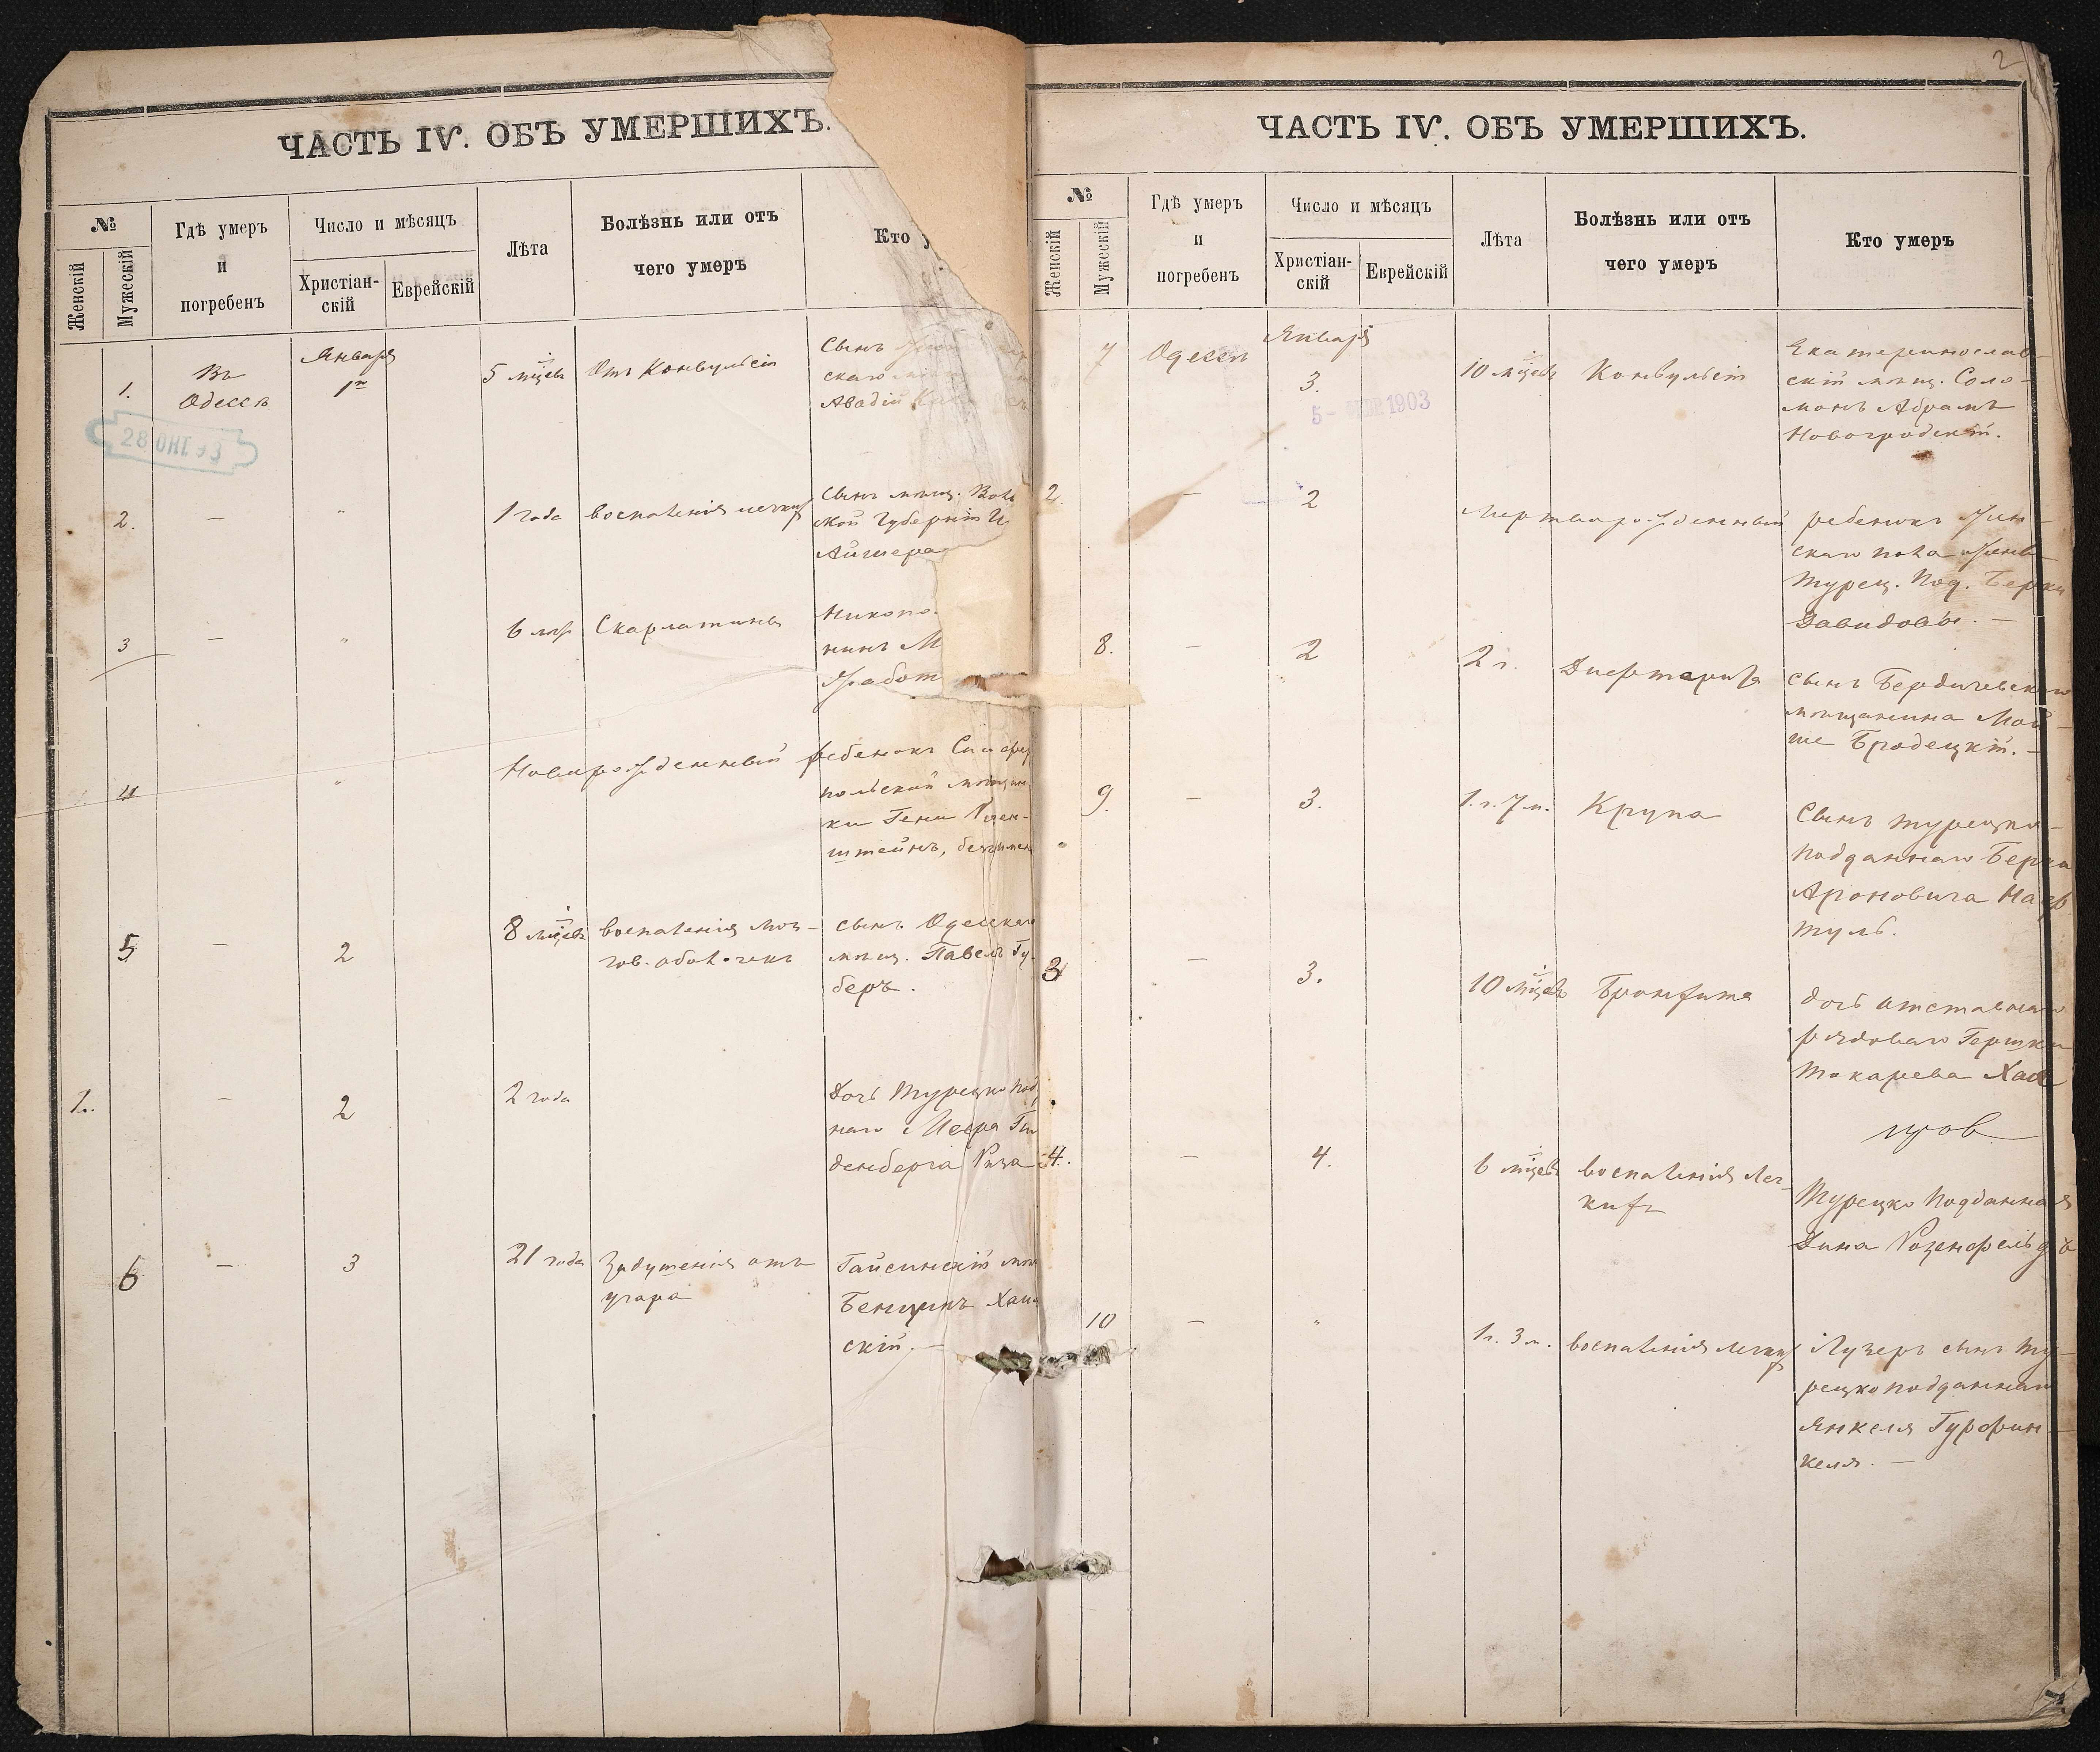 ЧАСТЬ IV. ОБЪ УМЕРШИХЪ.
№
Женскій
Мужескій
Гдѣ умеръ
и
погребенъ
Число и мѣсяцъ
Христіан-
скій
Еврейскій
Лѣта
Болѣзнь или отъ
чего умеръ
Кто
1.
Въ
Одессѣ
Января
1го
5 мѣсяц
Отъ Конвульсіи
Сынъ
скаго
Авадій
2.
—
"
1 года
воспаленія легких
Сынъ мѣщ.
ской Губерніи
3
—
"
6 лѣт
Скарлатины
Никопо
нинъ М
4
"
Новорожденный
ребенокъ Симферо
польской мѣщан
ки Гени Розен-
штейнъ, безъимен
5
—
2
8 мѣсяц
воспаленія моз-
гов. оболочекъ
сынъ Одесскаго
мѣщ. Павелъ Гу-
беръ.
1.
—
2
2 года
Дочь Турецко под
наго
денберга Роза
6
—
3
21 года
Задушенія отъ
угара
Гайсинскій мѣщ
Бенціонъ Хаи
скій. —
2
ЧАСТЬ IV. ОБЪ УМЕРШИХЪ.
№
Женскій
Мужескій
Гдѣ умеръ
и
погребенъ
Число и мѣсяцъ
Христіан-
скій
Еврейскій
Лѣта
Болѣзнь или отъ
чего умеръ
Кто умеръ
7
Одессѣ
Января
3.
1903
10 мѣсяц
Конвульсіи
Екатеринослав-
скій мѣщ. Соло-
монъ Абрамъ
Новогродскій.
2.
—
2
Мертворожденный
ребенокъ жен-
скаго пола
Турец. Под. Берки
Давидовы. —
8.
—
2
2 г.
Дифтерита
сынъ Бердичевскаго
мѣщанина Мой-
ше Бродецкій. —
9.
—
3.
1. г. 7 м.
Крупа
Сынъ турецко-
подданнаго Берка
Ароновича Наф
туль.
3
—
3.
10 мѣсяц
Бронхита
дочь отставного
рядоваго Гершки
Токарева Хая
4.
—
4.
6 мѣсяц
воспаленія лег-
кихъ
Турецко подданная
Дина Розенфельдъ
10
—
"
1 г. 3 м.
воспаленія легких
Лузеръ сынъ Ту-
рецкоподданнаго
Янкеля Гурфин-
келя. —